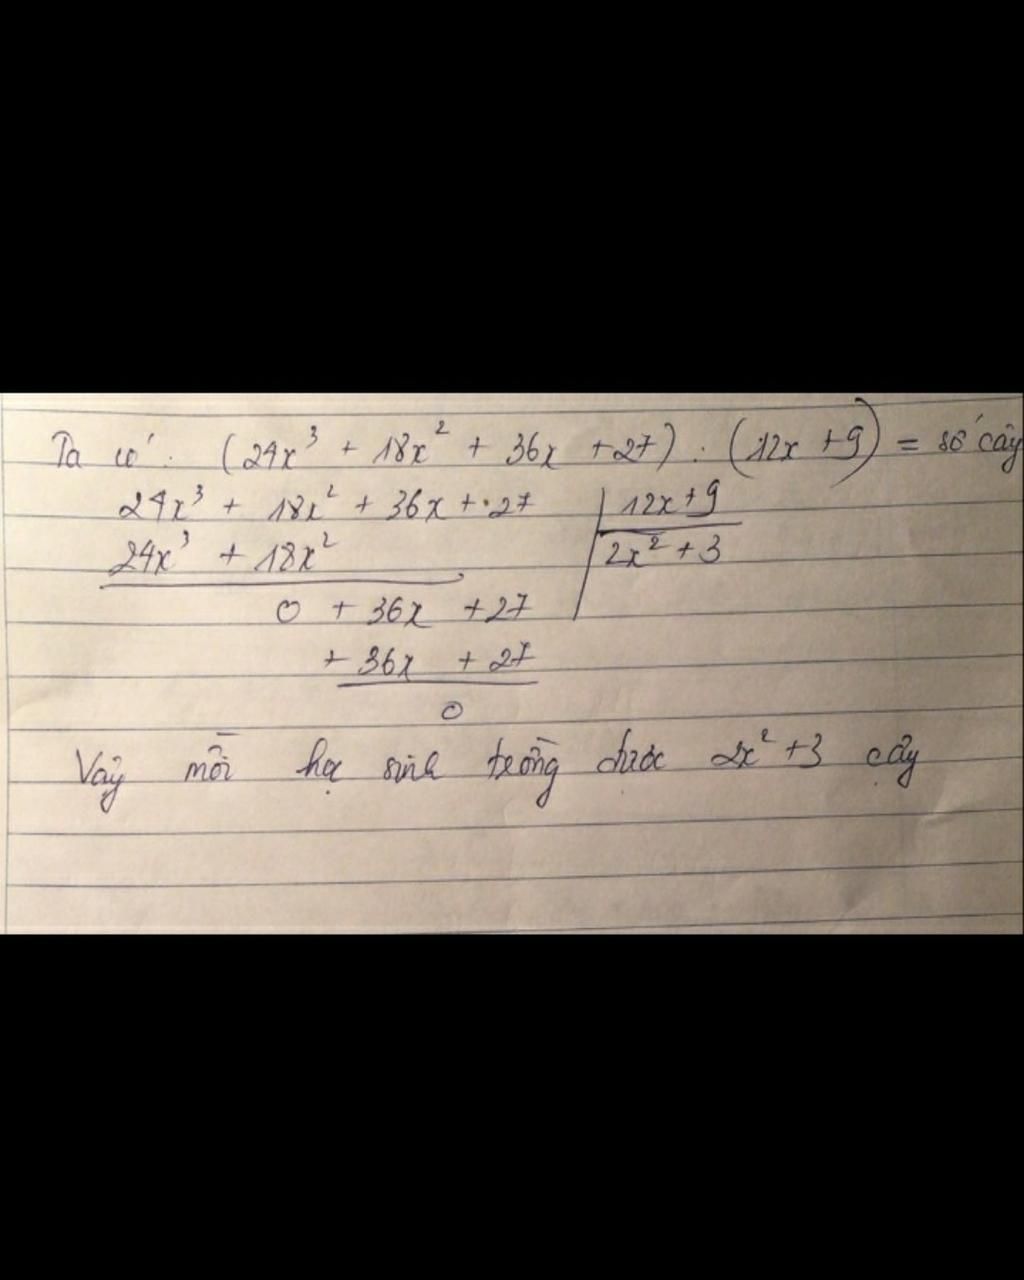 Ta có: (24x³ + 18x² + 36x + 27) : (12x + 9) = số cây
24x³ + 18x² + 36x + 27 | 12x + 9
24x³ + 18x² | 2x² + 3
0 + 36x + 27
+ 36x + 27
0
Vậy mỗi học sinh trồng được 2x² + 3 cây